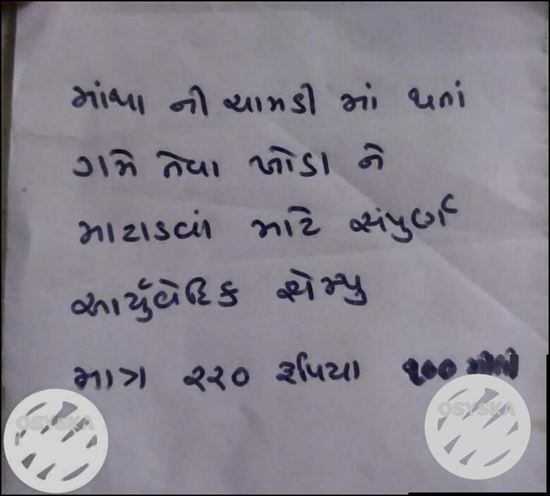 માંથા ની ચામડી માં થતાં
ગમે તેવા ખોડા ને
મટાડવાં માટે સંપુર્ણ
આર્યુવેદિક શેમ્પુ
માત્ર ૨૨૦ રૂપિયા ૧૦૦
OSYSKA OSYSKA